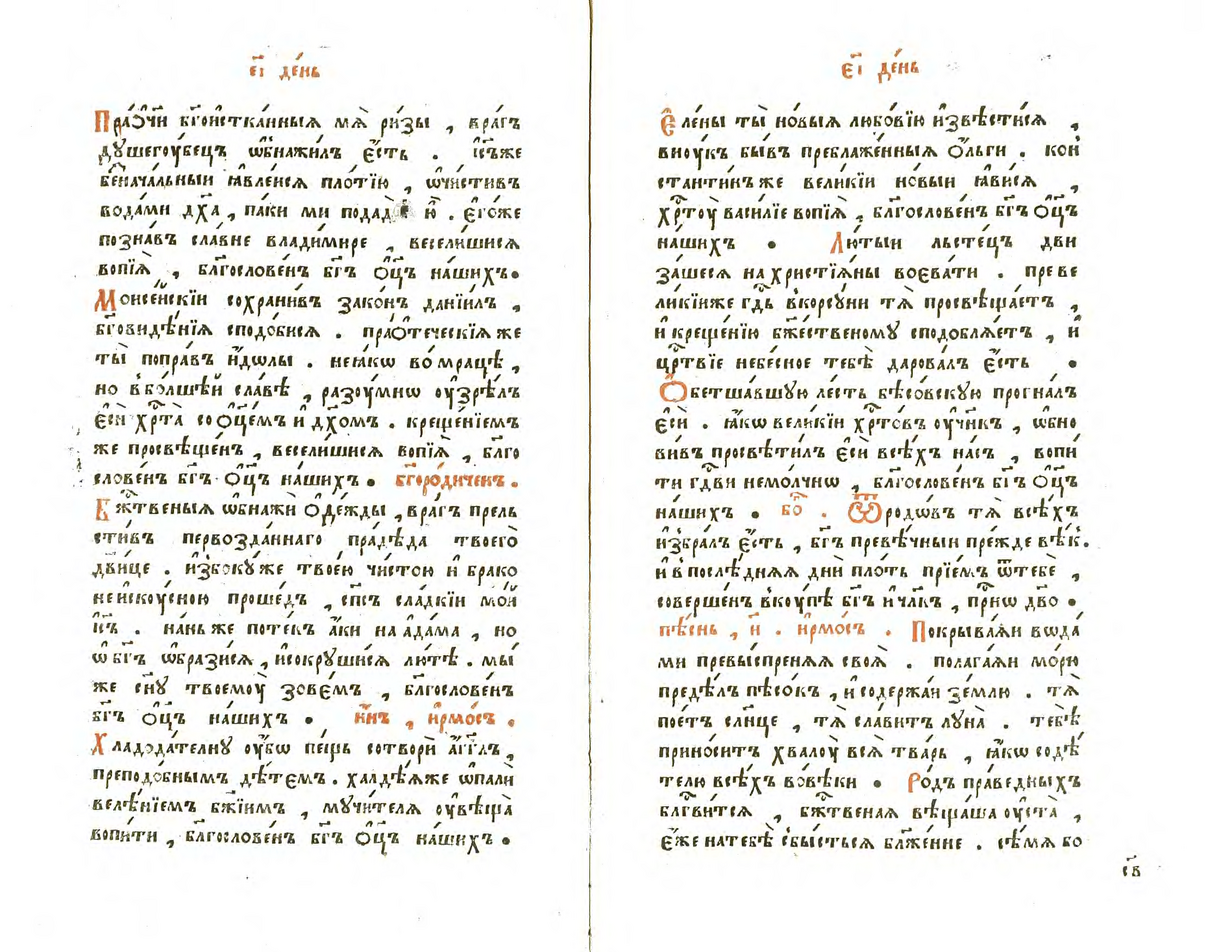 є҃і де́нь
Пра́ѻчи бг҃оистка́нныѧ мѧ̀ ри́зы , вра́гъ
дꙋшегоу́бецъ ѡ҆бнажи́лъ є҆́сть . і҆с҃ъже
безнача́льныи ꙗ҆вле́исѧ пло́тїю , ѡ҆чи́стивъ
вода́ми дх҃а , па́ки ми пода́де ю҆̀ . є҆го́же
позна́въ сла́вне влади́мире , весели́шисѧ
вопїѧ̀ , благослове́нъ бг҃ъ ѻ҆ц҃ъ на́шихъ •
Моисе́искїи сохрани́въ зако́нъ данїи́лъ ,
бг҃овидѣ́нїѧ сподо́бисѧ . пра́ѻтеческїѧ же
ты̀ попра́въ и҆́дѡлы . не ꙗ҆́кѡ во мра́цѣ ,
но в бо́лшеи сла́вѣ , разоу́мнѡ оу҆зрѣ́лъ
є҆сѝ хрⷭ҇та̀ со ѻ҆ц҃е́мъ и҆ дх҃омъ . креще́нїемъ
же просвѣще́нъ , весели́шисѧ вопїѧ̀ , благо
слове́нъ бг҃ъ ѻ҆ц҃ъ на́шихъ • бг҃оро́диченъ .
Бжⷭ҇твеныѧ ѡ҆бнажѝ ѻ҆де́жды , вра́гъ прель
сти́въ первозда́ннаго пра́дѣда твоего̀
дв҃ице . и҆збо́кꙋ же твое́ю чи́стою и҆ брако
неискоу́сною проше́дъ , сп҃съ сла́дкїи мо́и
і҆с҃ъ . на́нь же поте́къ а҆́ки на а҆да́ма , но
ѡ҆ бг҃ъ ѡ҆брази́сѧ , и҆ сокрꙋши́сѧ лю́тѣ . мы́
же сн҃ꙋ твоемоу̀ зове́мъ , благослове́нъ
бг҃ъ ѻ҆ц҃ъ на́шихъ • и҆́нъ , і҆рмо́съ .
Хладода́телнꙋ оу҆́бѡ пе́щь сотворѝ а҆́гг҃лъ ,
преподо́бнымъ дѣ́темъ . халдѣ́ѧже ѡ҆палѝ
велѣ́нїемъ бж҃їимъ , мꙋчи́телѧ оу҆вѣща̀
вопи́ти , благослове́нъ бг҃ъ ѻ҆ц҃ъ на́шихъ •
є҃і де́нь
Є҆ле́ны ты̀ но́выѧ любо́вїю и҆звѣ́стисѧ ,
вноу́къ бы́въ преблаже́нныѧ ѻ҆́льги . кон
стантинъже вели́кїи но́выи ꙗ҆ви́сѧ ,
хрⷭ҇тоу̀ васи́лїе вопїѧ̀ , благослове́нъ бг҃ъ ѻ҆ц҃ъ
на́шихъ • Лю́тыи льсте́цъ дви
за́шесѧ на христїѧ́ны воева́ти . преве
ли́кїиже гдⷭ҇ь в корсꙋ́ни тѧ̀ просвѣща́етъ ,
и҆ креще́нїю бжⷭ҇ественомꙋ сподоблѧ́етъ , и҆
црⷭ҇твїе небе́сное тебѣ̀ дарова́лъ є҆́сть •
Ѻ҆бетша́вшꙋю ле́сть бѣсо́вскꙋю прогна́лъ
є҆сѝ . ꙗ҆́кѡ вели́кїи хрⷭ҇то́въ оу҆чн҃къ , ѡ҆бно
ви́въ просвѣти́лъ є҆сѝ всѣ́хъ на́съ , вопи
ти гдⷭ҇ви немо́лчнѡ , благослове́нъ бг҃ъ ѻ҆ц҃ъ
на́шихъ • бо҃ . Ѿ родѡ́въ тѧ̀ всѣ́хъ
и҆збра́лъ є҆́сть , бг҃ъ превѣ́чныи пре́жде вѣ́к.
и҆ в послѣ́днѧѧ дни̑ пло́ть прїе́мъ ѿ тебѐ ,
соверше́нъ вкоу́пѣ бг҃ъ и҆ чл҃къ , прⷭ҇нѡ дв҃о •
пѣ́снь , и҃ . і҆рмо́съ . Покрыва́ѧи вѡда́
ми превы́спренѧѧ своѧ̀ . полага́ѧи мо́рю
предѣ́лъ пѣсо́къ , и҆ содержа́и зе́млю . тѧ̀
пое́тъ сл҃нце , тѧ̀ сла́витъ лꙋна̀ . тебѣ̀
прино́ситъ хвалоу̀ всѧ̀ тва́рь , ꙗ҆́кѡ содѣ́
телю всѣ́хъ во вѣ́ки • Ро́дъ пра́ведныхъ
благⷭ҇ви́тсѧ , бжⷭ҇твенаѧ вѣща́ша оу҆ста̀ ,
є҆́же на тебѣ̀ сбы́стьсѧ блаже́нне . сѣ́мѧ бо
с҃в